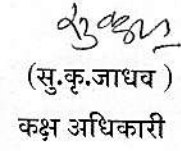 (सु.कृ.जाधव )
कक्ष अधिकारी